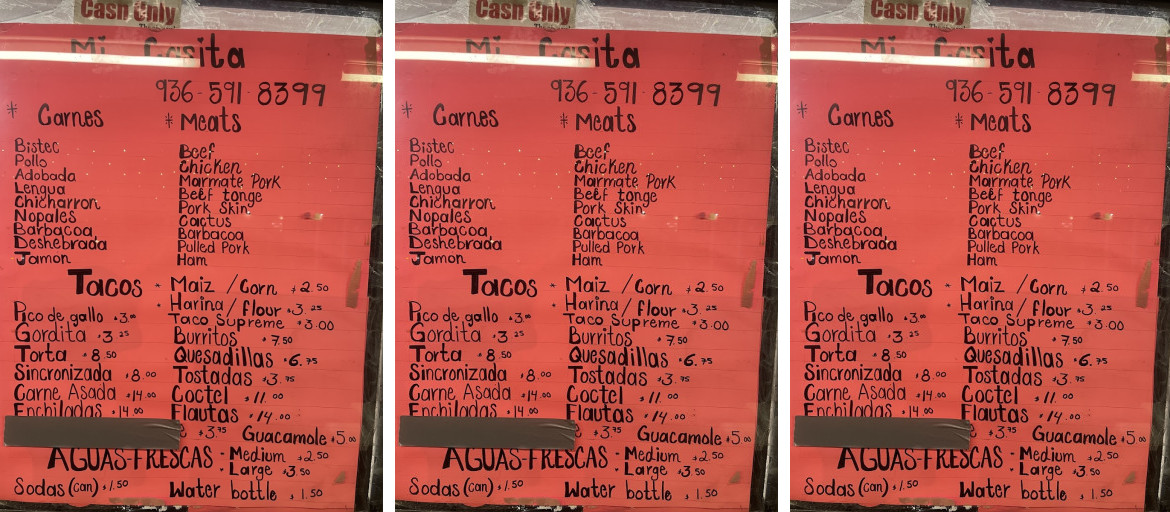 Cash Only
Mi Casita
936-591-8399
* Carnes * Meats
Bistec Beef
Pollo Chicken
Adobada Marmate Pork
Lengua Beef tonge
Chicharron Pork Skin
Nopales Cactus
Barbacoa Barbacoa
Deshebrada Pulled Pork
Jamon Ham
Tacos * Maiz / Corn $2.50
* Harina / flour $3.25
Pico de gallo $3.00 Taco Supreme $3.00
Gordita $3.25 Burritos $7.50
Torta $8.50 Quesadillas $6.75
Sincronizada $8.00 Tostadas $3.75
Carne Asada $14.00 Coctel $11.00
Enchiladas $14.00 Flautas $14.00
$3.75 Guacamole $5.00
AGUAS-FRESCAS - Medium $2.50
- Large $3.50
Sodas (can) $1.50 Water bottle $1.50
Cash Only
Mi Casita
936-591-8399
* Carnes * Meats
Bistec Beef
Pollo Chicken
Adobada Marmate Pork
Lengua Beef tonge
Chicharron Pork Skin
Nopales Cactus
Barbacoa Barbacoa
Deshebrada Pulled Pork
Jamon Ham
Tacos * Maiz / Corn $2.50
* Harina / flour $3.25
Pico de gallo $3.00 Taco Supreme $3.00
Gordita $3.25 Burritos $7.50
Torta $8.50 Quesadillas $6.75
Sincronizada $8.00 Tostadas $3.75
Carne Asada $14.00 Coctel $11.00
Enchiladas $14.00 Flautas $14.00
$3.75 Guacamole $5.00
AGUAS-FRESCAS - Medium $2.50
- Large $3.50
Sodas (can) $1.50 Water bottle $1.50
Cash Only
Mi Casita
936-591-8399
* Carnes * Meats
Bistec Beef
Pollo Chicken
Adobada Marmate Pork
Lengua Beef tonge
Chicharron Pork Skin
Nopales Cactus
Barbacoa Barbacoa
Deshebrada Pulled Pork
Jamon Ham
Tacos * Maiz / Corn $2.50
* Harina / flour $3.25
Pico de gallo $3.00 Taco Supreme $3.00
Gordita $3.25 Burritos $7.50
Torta $8.50 Quesadillas $6.75
Sincronizada $8.00 Tostadas $3.75
Carne Asada $14.00 Coctel $11.00
Enchiladas $14.00 Flautas $14.00
$3.75 Guacamole $5.00
AGUAS-FRESCAS - Medium $2.50
- Large $3.50
Sodas (can) $1.50 Water bottle $1.50